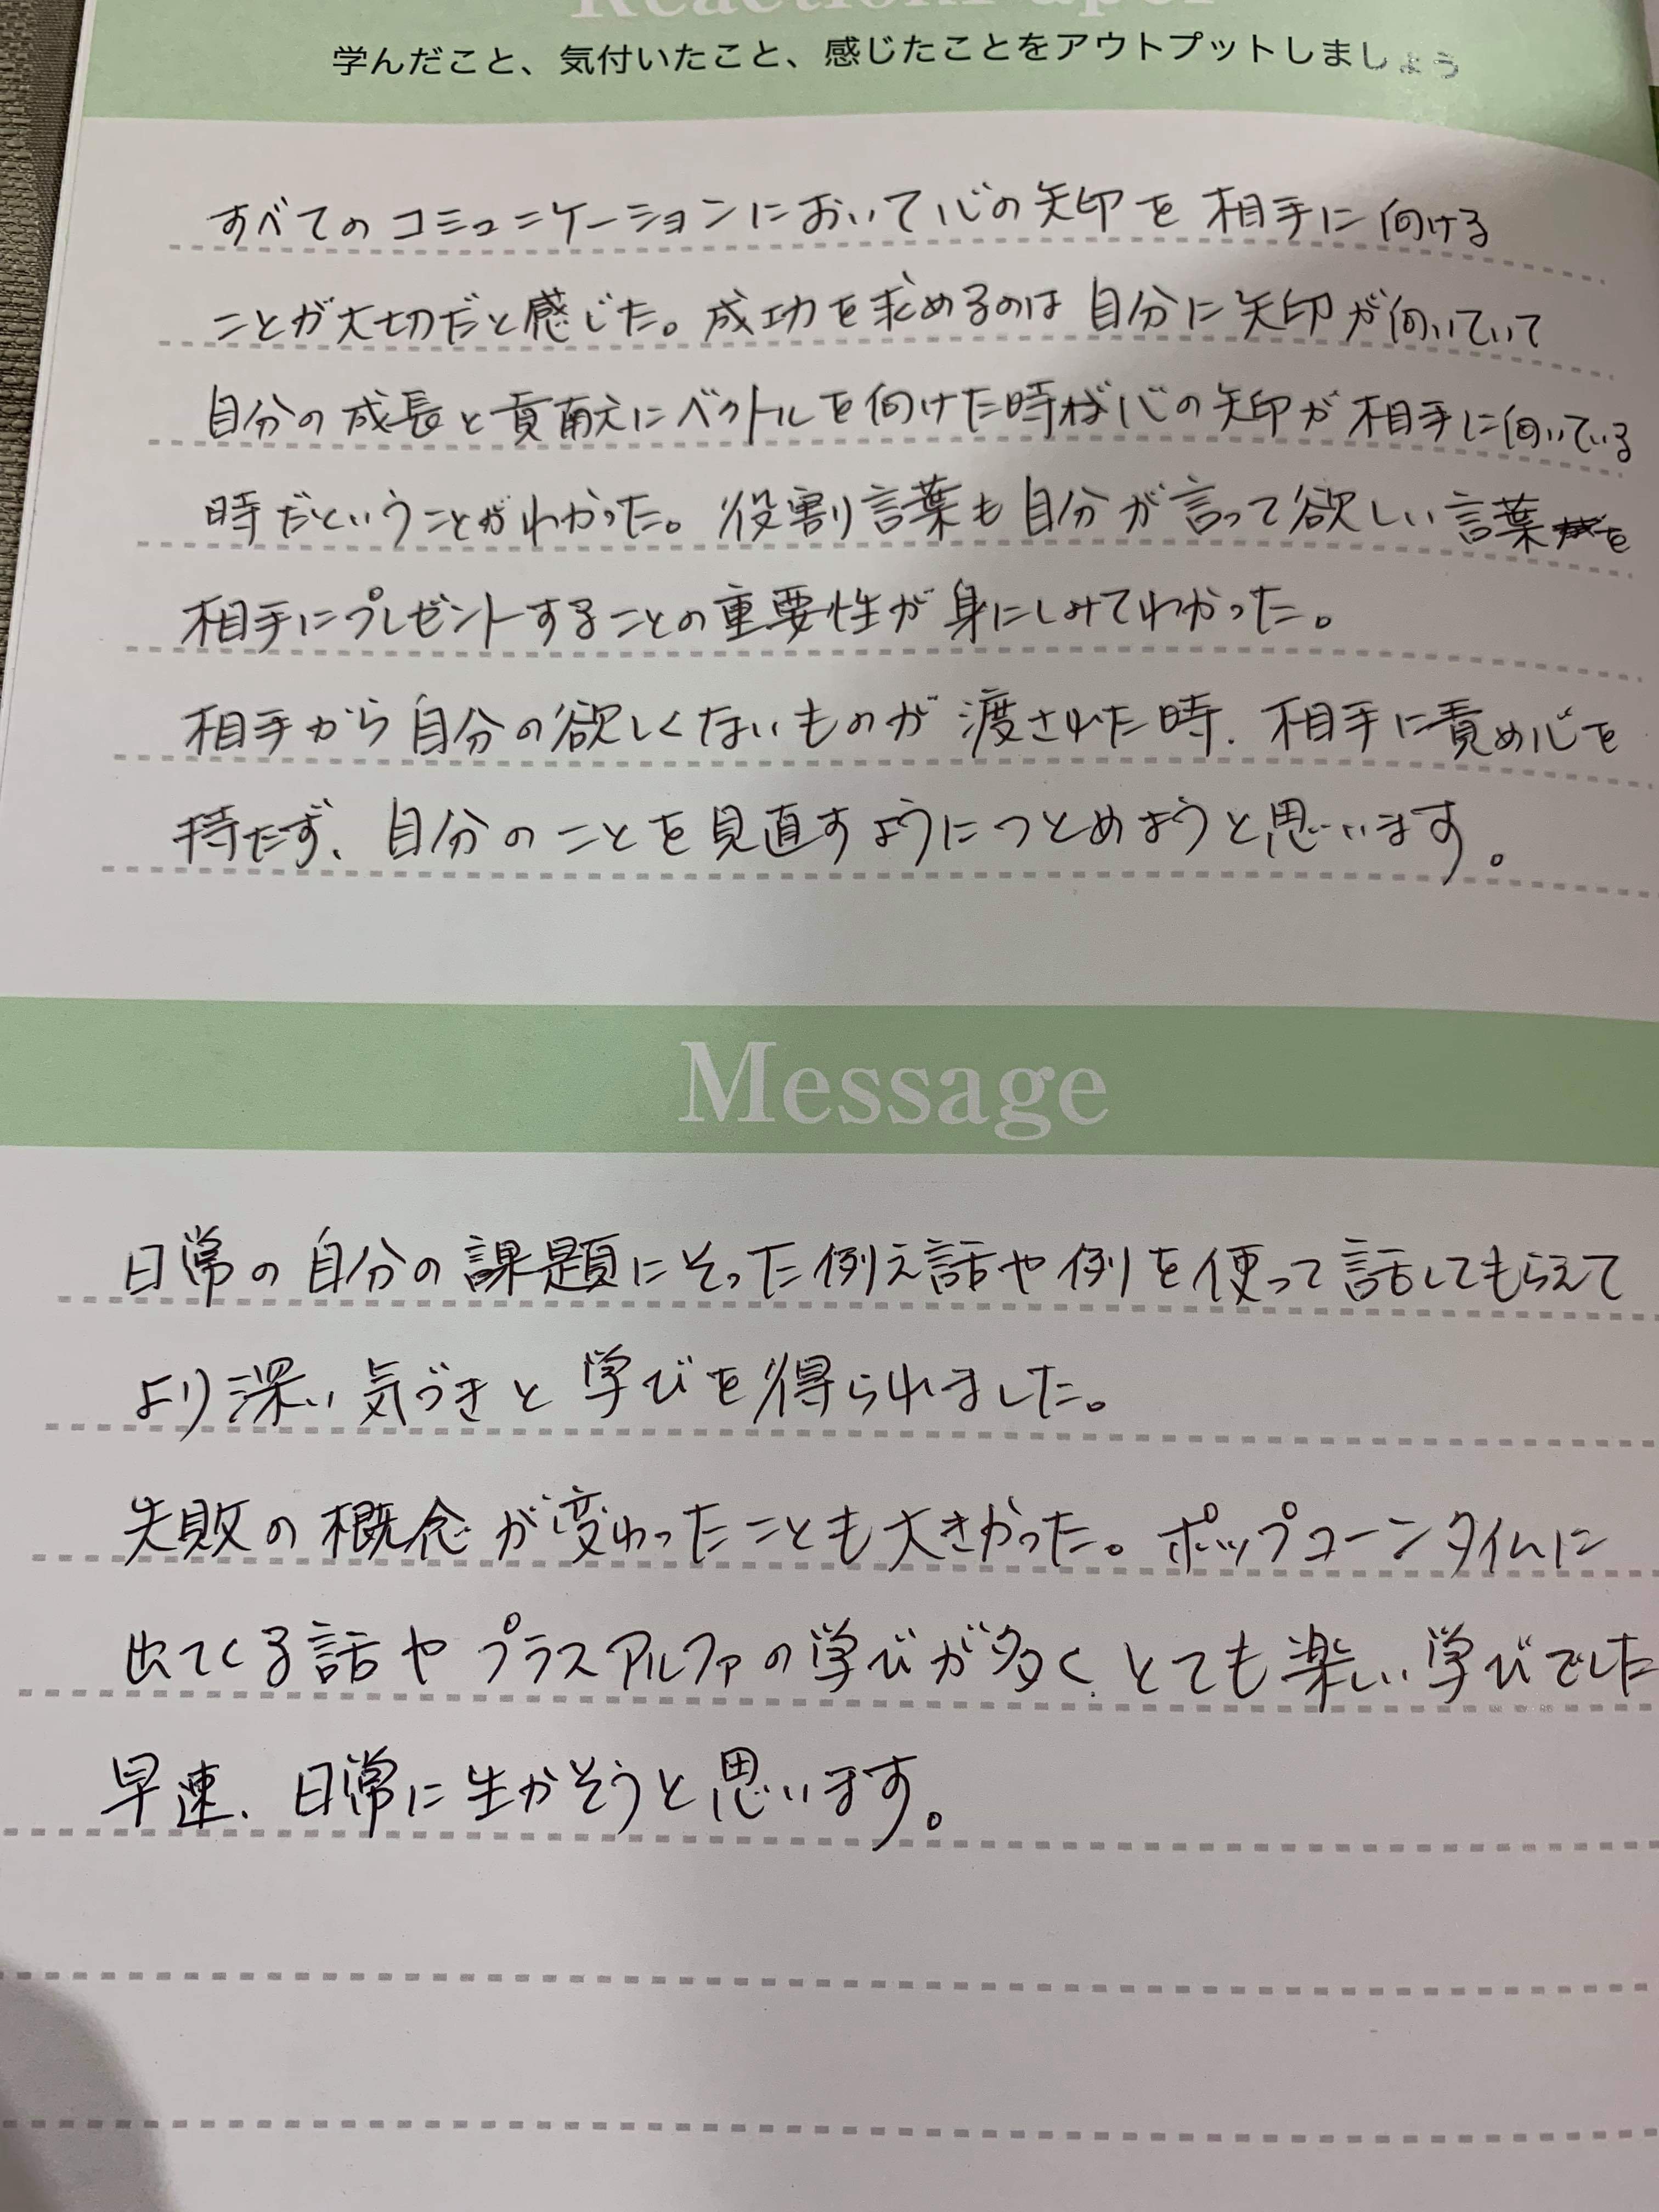 ReactionPaper
学んだこと、気付いたこと、感じたことをアウトプットしましょう
すべてのコミュニケーションにおいて心の矢印を相手に向ける
ことが大切だと感じた。成功を求めるのは自分に矢印が向いていて
自分の成長と貢献にベクトルを向けた時が心の矢印が相手に向いている
時だということがわかった。役割言葉も自分が言って欲しい言葉を
相手にプレゼントすることの重要性が身にしみてわかった。
相手から自分の欲しくないものが渡された時、相手に責め心を
持たず、自分のことを見直すようにつとめようと思います。
Message
日常の自分の課題にそった例え話や例を使って話してもらえて
より深い気づきと学びを得られました。
失敗の概念が変わったことも大きかった。ポップコーンタイムに
出てくる話やプラスアルファの学びが多く、とても楽しい学びでした
早速、日常に生かそうと思います。